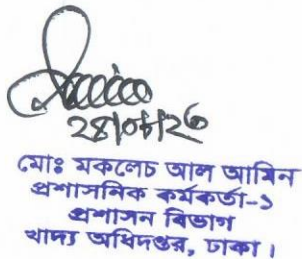 মোঃ মকলেচ আল আমিন
প্রশাসনিক কর্মকর্তা-১
প্রশাসন বিভাগ
খাদ্য অধিদপ্তর, ঢাকা।